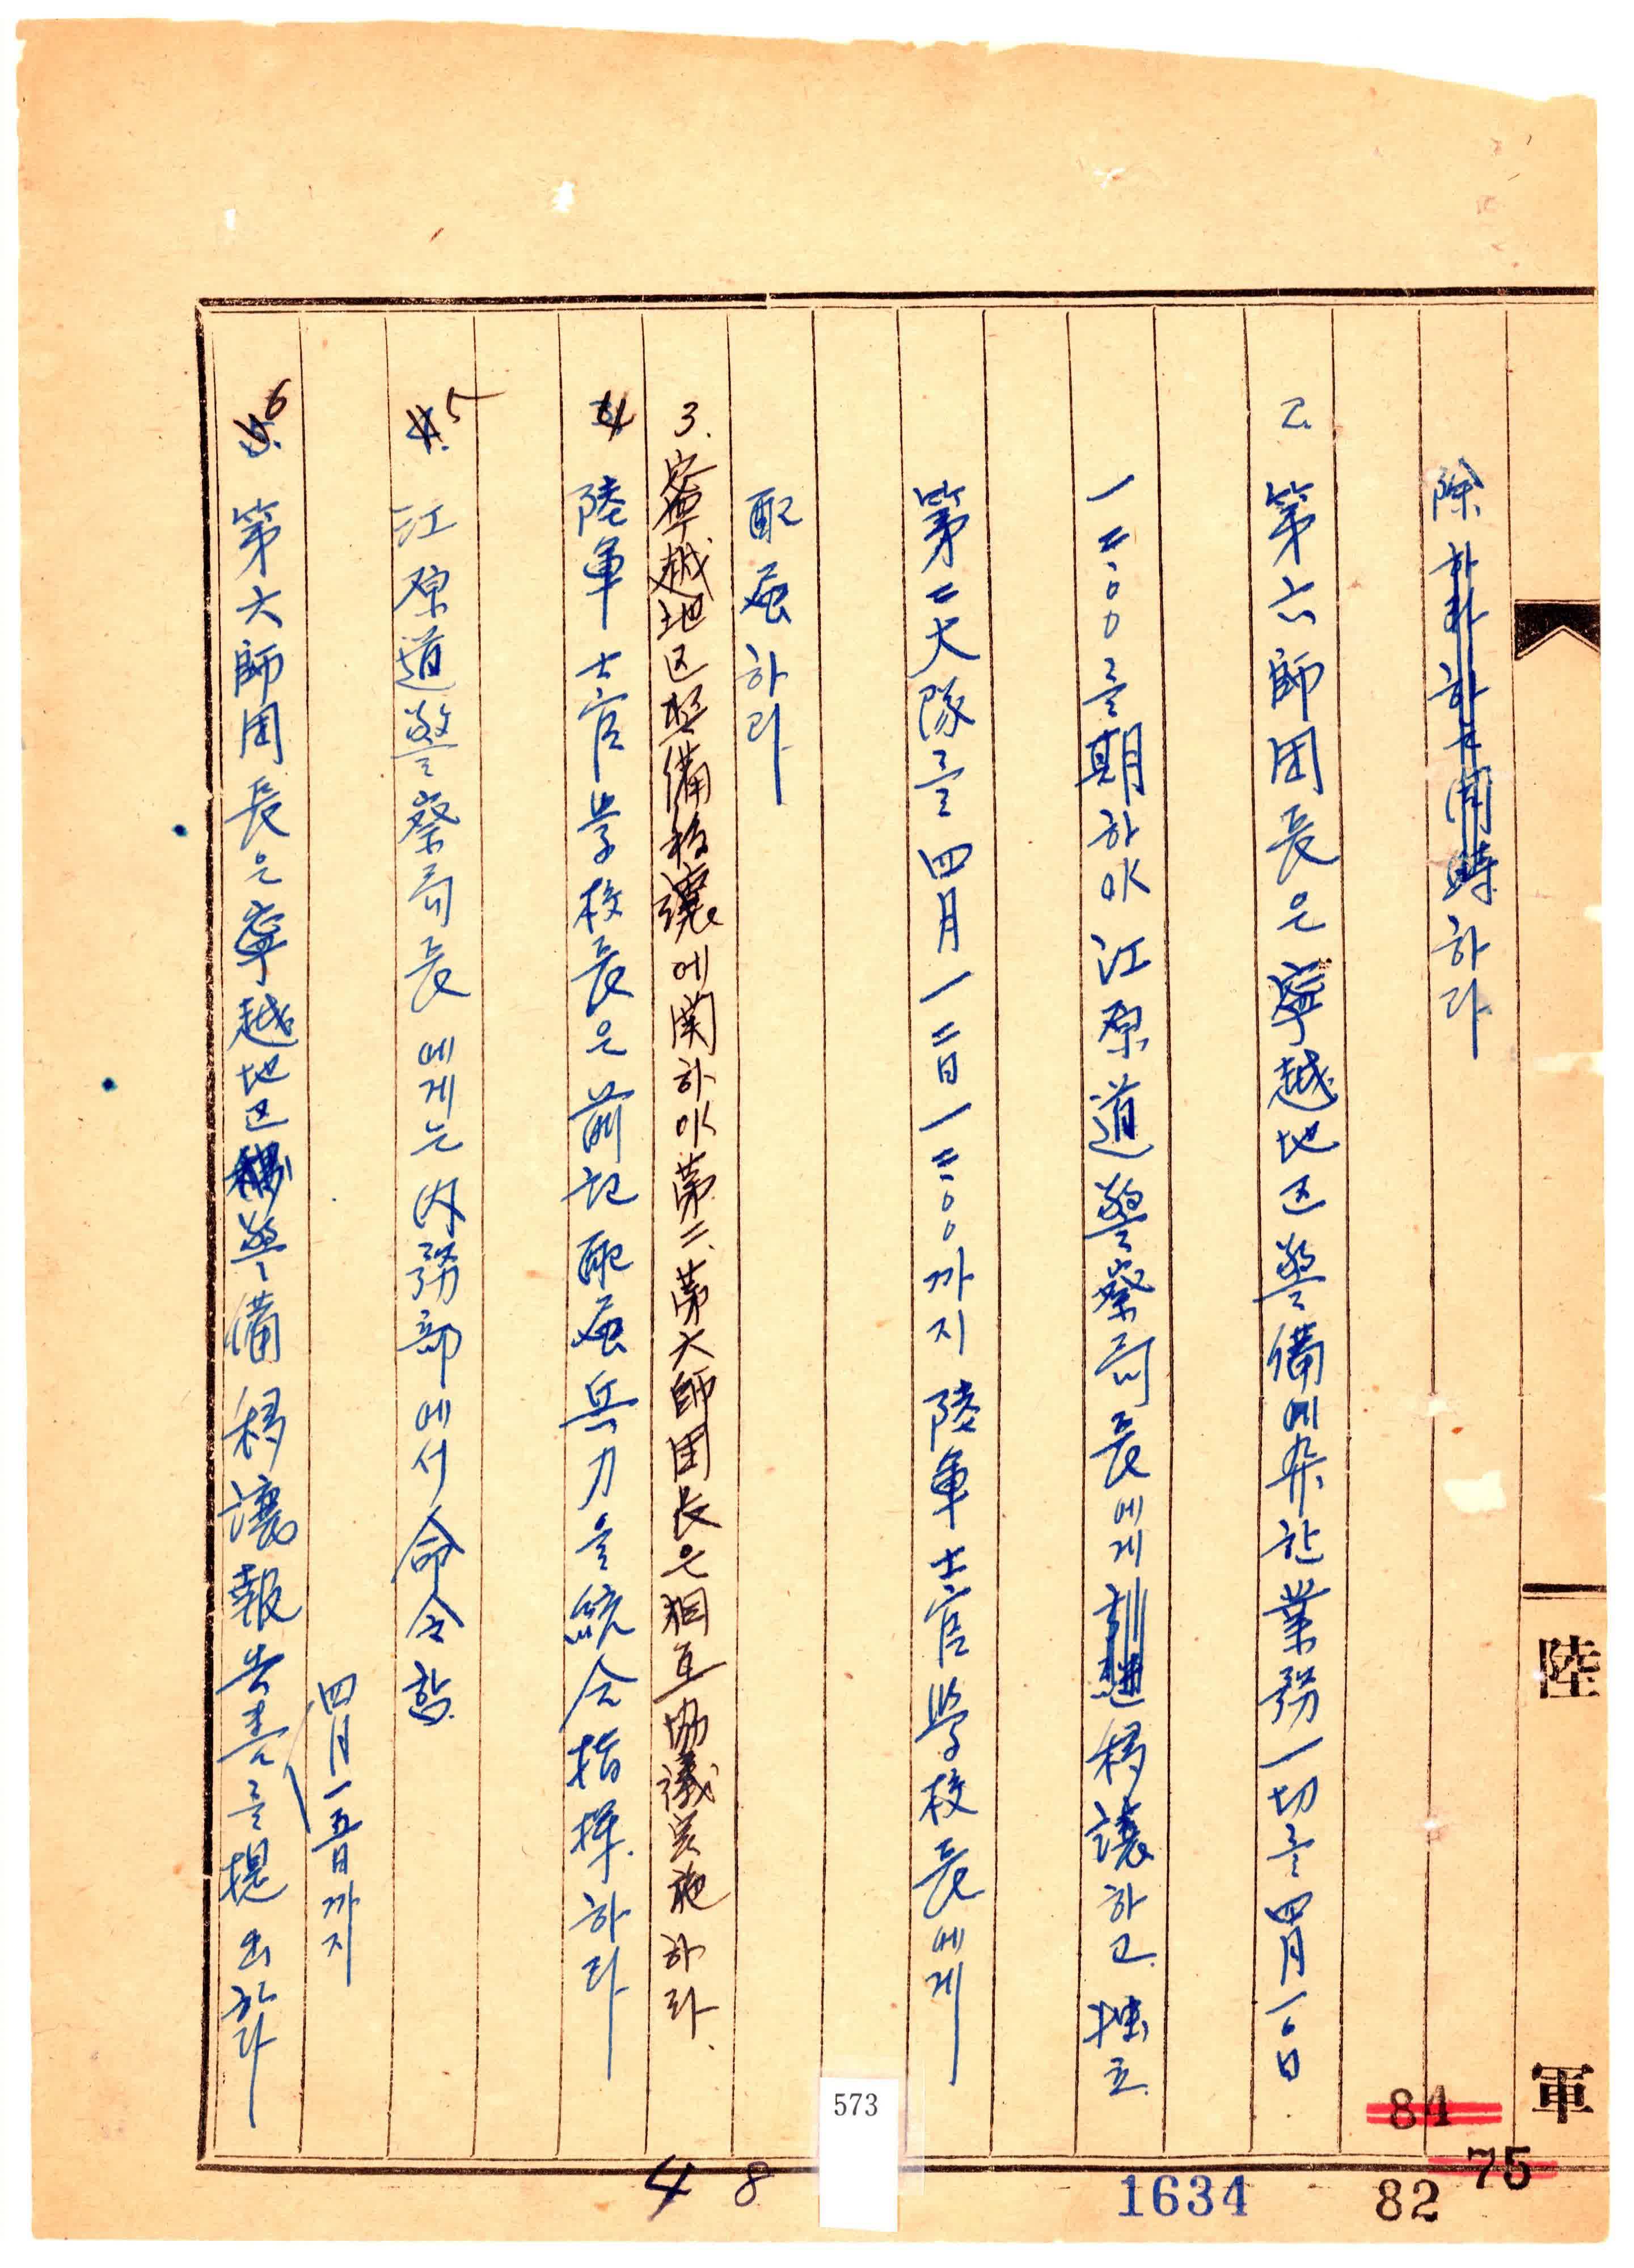 除하라
2. 第六師団長은 寧越地区警備에关한業務一切를 四月一〇日
一二〇〇를期하야 江原道警察局長에게 移讓하고 独立
第二大隊를 四月一二日一二〇〇까지 陸軍士官學校長에게
配属하라
3. 寧越地区警備移讓에関하야 第二、第六師団長은 相互協議実施하라.
4 陸軍士官学校長은 前記配属兵力을 統合指揮하라
5 江原道警察局長에게는 内務部에서 命令함.
四月一五日까지
6 第六師団長은 寧越地区警備移讓報告書를提出하라
陸軍
573
4 8
1634
84
75
82